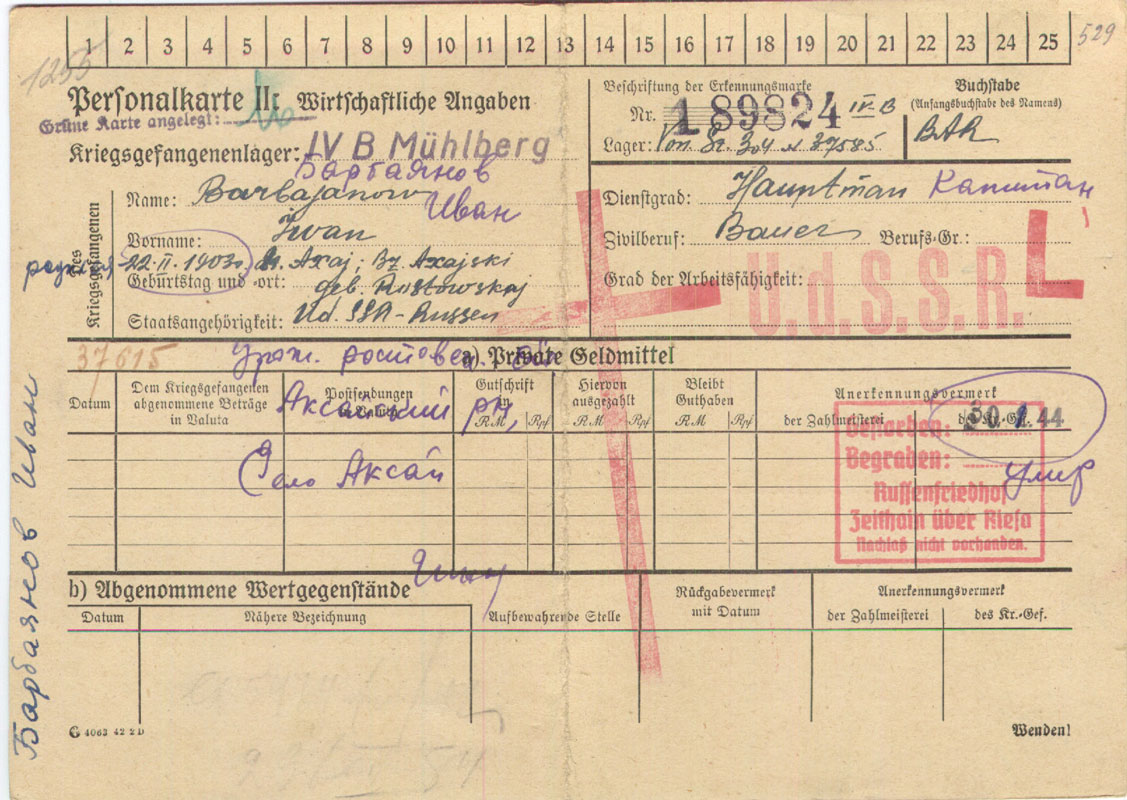 1 2 3 4 5 6 7 8 9 10 11 12 13 14 15 16 17 18 19 20 21 22 23 24 25
529
1255
Personalkarte II: Wirtschaftliche Angaben
Grüne Karte angelegt:
Kriegsgefangenenlager: IV B Mühlberg
Beschriftung der Erkennungsmarke
Nr. 189824 IV B
Lager: Von St. 304 N 37585
Buchstabe
(Anfangsbuchstabe des Namens)
BAR
Des Kriegsgefangenen
Барбаянов
Name: Barbajanow
Иван
Vorname: Iwan
22.II.1903
Geburtstag und -ort:
Axaj; Bz. Axajski
geb. Rostowskaj
Staatsangehörigkeit: Ud. SSR-Russen
Dienstgrad: Hauptman Капитан
Zivilberuf: Bauer Berufs-Gr.:
Grad der Arbeitsfähigkeit:
L
U.d.S.S.R.
37615
Урож. a) Private Geldmittel
Datum
Dem Kriegsgefangenen abgenommene Beträge in Valuta
Postsendungen
Gutschrift in RM Rpf
Hiervon ausgezahlt RM Rpf
Bleibt Guthaben RM Rpf
Anerkennungsvermerk
der Zahlmeisterei
des Kr.-Gef.
Аксайский рн,
Село Аксай
30. 1. 44
Gestorben:
Begraben:
Умер
Russenfriedhof
Zeithain über Riesa
Nachlaß nicht vorhanden.
b) Abgenommene Wertgegenstände
Datum
Nähere Bezeichnung
Aufbewahrende Stelle
Rückgabevermerk mit Datum
Anerkennungsvermerk
der Zahlmeisterei
des Kr.-Gef.
Барбаянов Иван
G 4063 42 2 D
Wenden!